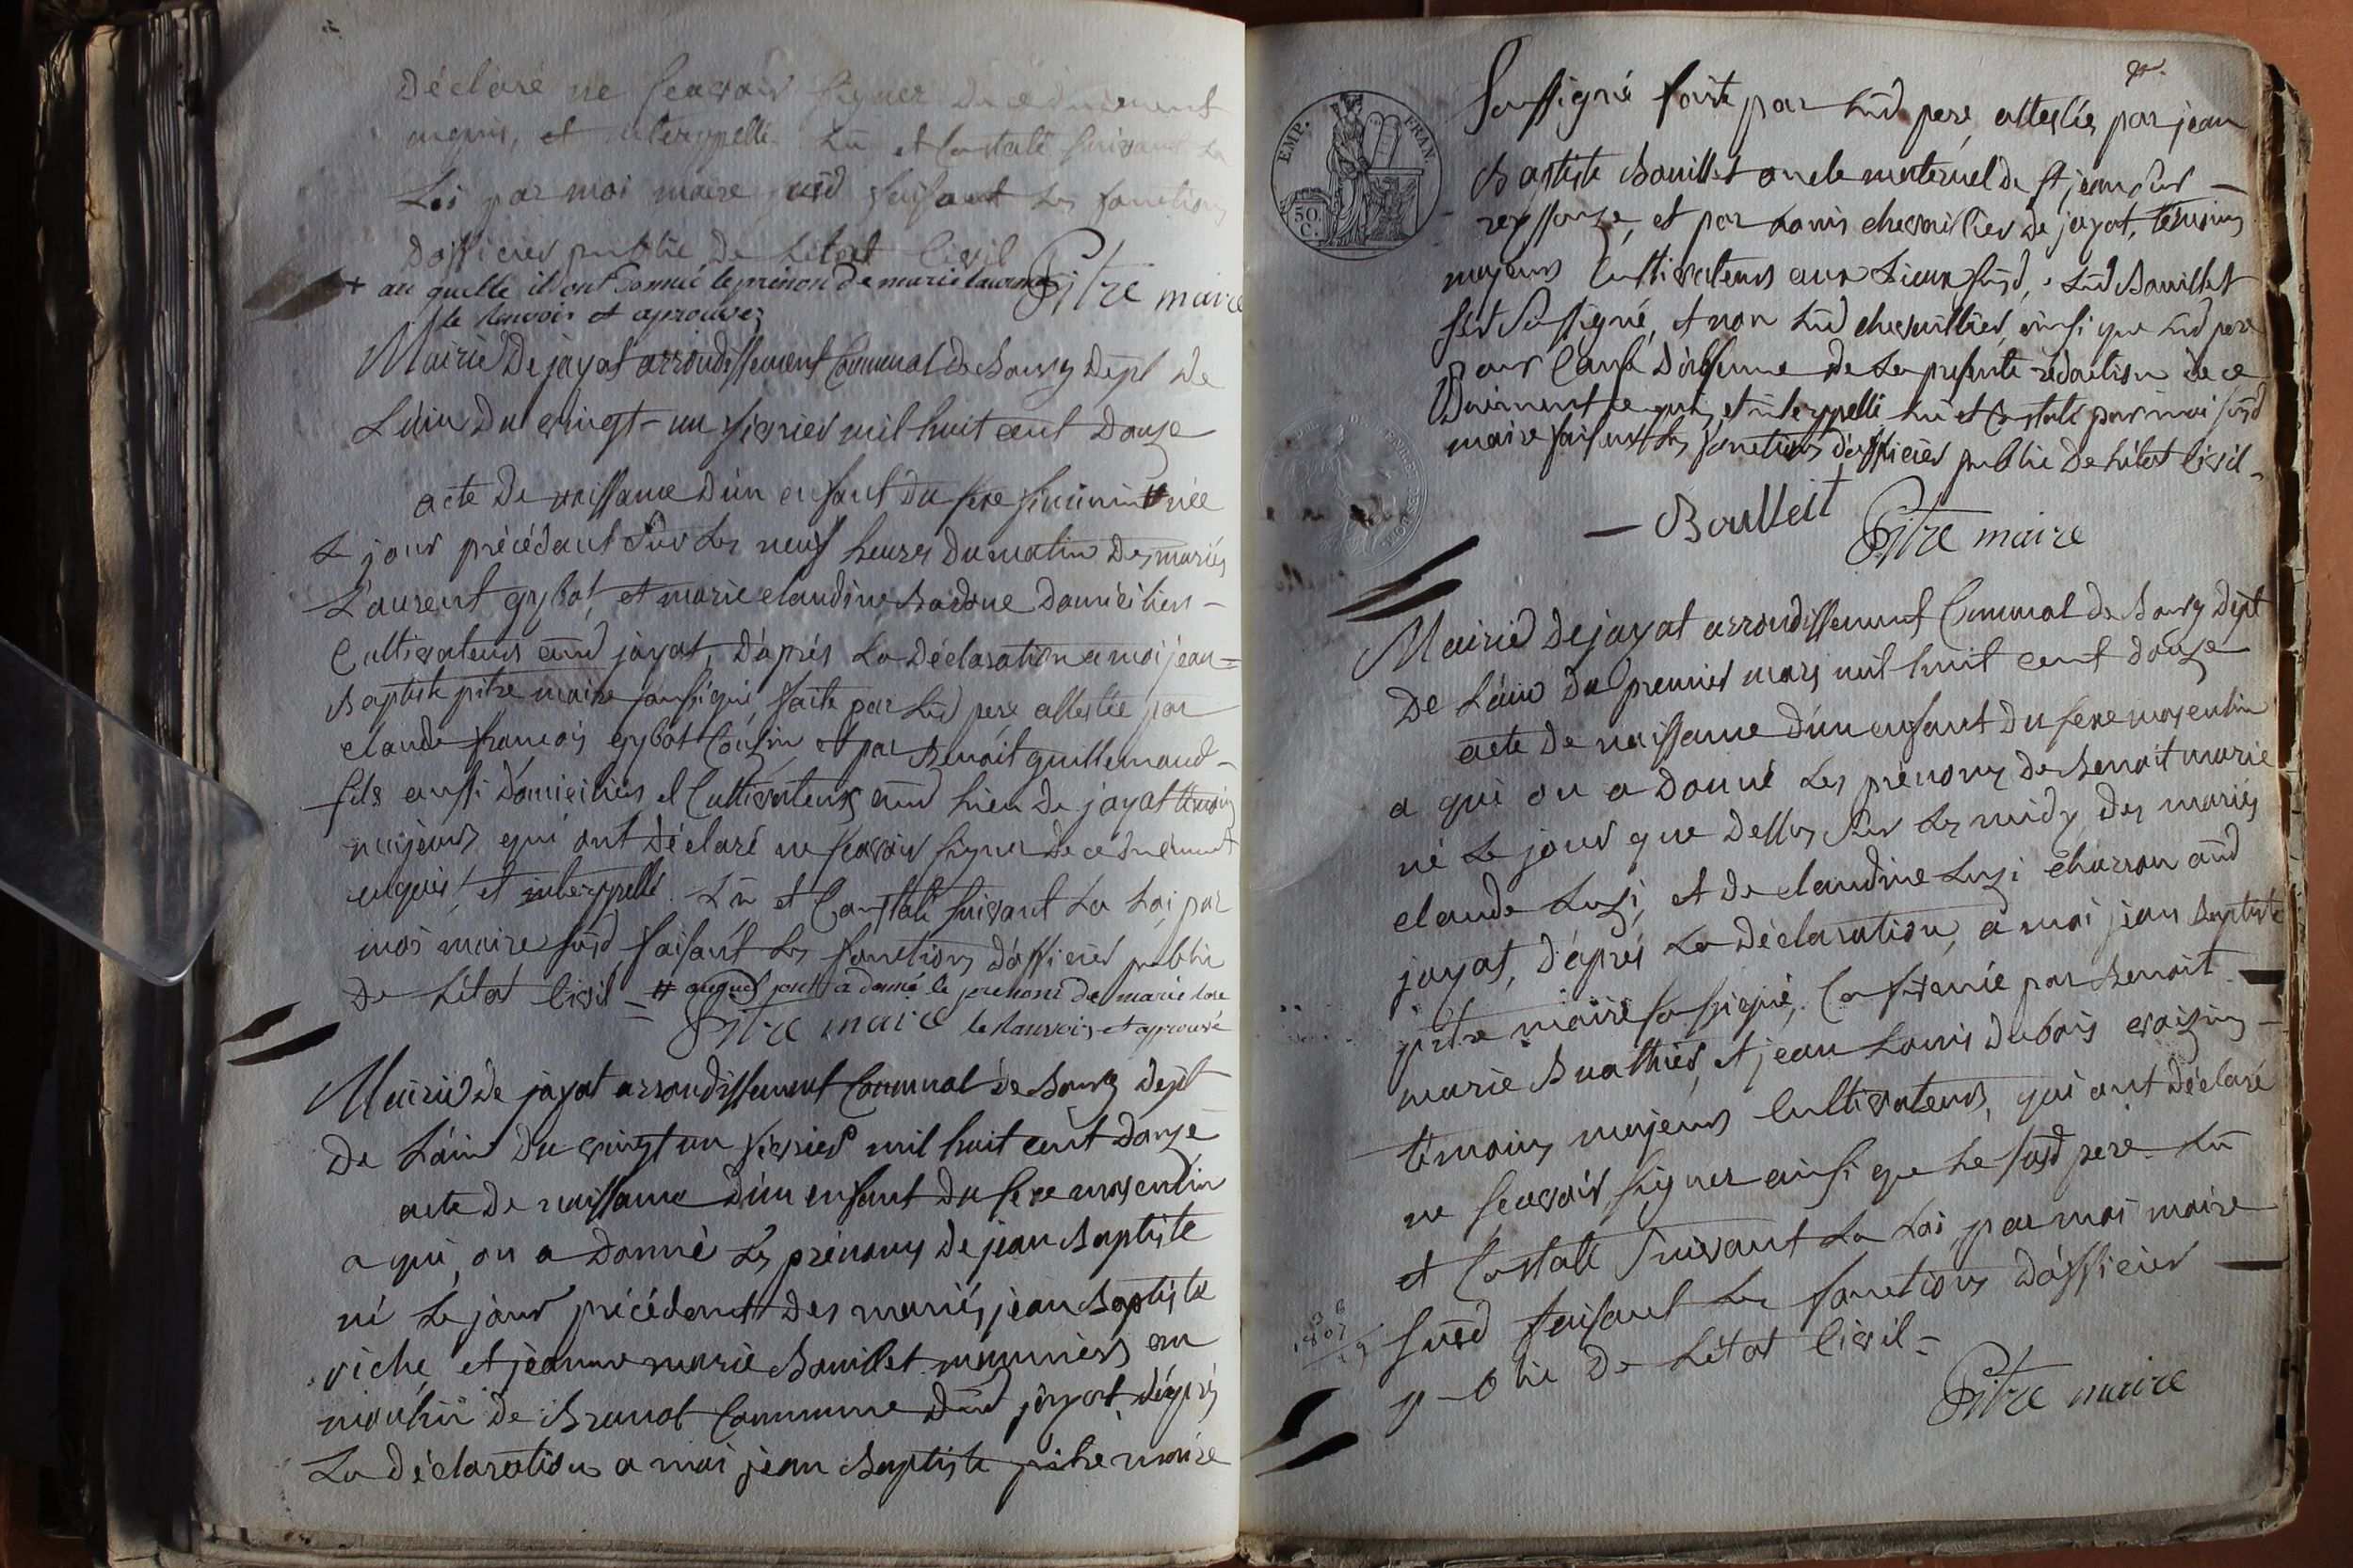 Déclaré ne sçavoir signer de ce duement
enquis, et interppellé Lu et Constaté suivant La
Loi par moi maire susd faisant les fonctions
dofficier public De Létat Civil
+ au quelle il ont Donné le prénon de marie
le Renvois et aprouvez
Pitre maire
Mairie De jayat arrondissement Communal de Bourg Dept De
L'ain Du vingt-un fevrier mil huit cent Douze
acte De naissance D'un enfant Du sexe feminin # née
Le jour précédant Sur Les neuf heures du matin Des mariés
Laurent gybot, et marie claudine Domiciliers -
Cultivateurs aud jayat, D'aprés La Déclaration a moi jean=
Baptiste pitre maire soussigné, faite par Lud pere attestée par
claude françois gybot Cousin et par Benoit guillemaud -
fils aussi Domiciliés et Cultivateurs aud Lieu De jayat temoins
majeurs, qui ont Déclaré ne sçavoir signer de ce duement
enquis, et interppellé. Lu et Constaté suivant La Loi, par
moi maire susd faisant les fonctions D'officier public
De Létat Civil = # auquel jont a donné le prenom de marie
Pitre maire le Ranvois et aprouvé
Mairie De jayat arrondissement Communal de Bourg Dept
De L'ain Du vingt un fevrier mil huit cent Douze
acte De naissance D'un enfant Du sexe masculin
a qui, on a Donné Les prénoms De jean Baptiste
né Le jour précédent Des mariés jean Baptiste
riche, et jeanne marie Bouillet meuniers au
moulin de Commune Dud jayat, D'aprés
La Déclaration a moi jean Baptiste pitre maire
Soussigné faite par Lud pere, attestée par jean
Baptiste Bouillet oncle maternel de St jean sur -
reyssouze, et par Louis chevaillier de jayat, témoins
majeurs Cultivateurs aux Lieux susd, Lud Bouillet
s'est Soussigné, et non Lud chevaillier, ainsi que Lud pere
pour Cause D'absence de La presente rédaction De ce
Duement requis, et interppellé Lu et Constaté par moi susd
maire faisant Les fonctions d'officier public De Létat Civil -
- Boulleit
Pitre maire
EMP. FRAN.
50. C.
Mairie De jayat arrondissement Communal De Bourg Dept
De L'ain Du premier mars mil huit cent douze
acte De naissance D'un enfant Du sexe masculin
a qui on a Donné Les prénoms De Benoit marie
né Le jour que Dessus Sur Les midy Des mariés
claude Luzi, et De claudine Luzi charron aud
jayat, D'aprés La Déclaration, a moi jean Baptiste
pitre maire soussigné, Confirmée par Benoit
marie Buathier, et jean Louis Dubois voizins -
témoins majeurs Cultivateurs, qui ont Déclaré
ne sçavoir signer ainsi que Le susd pere Lu
et Constaté Suivant La Loi, par moi maire
susd faisant Les fonctions D'officier -
public De Létat Civil -
Pitre maire